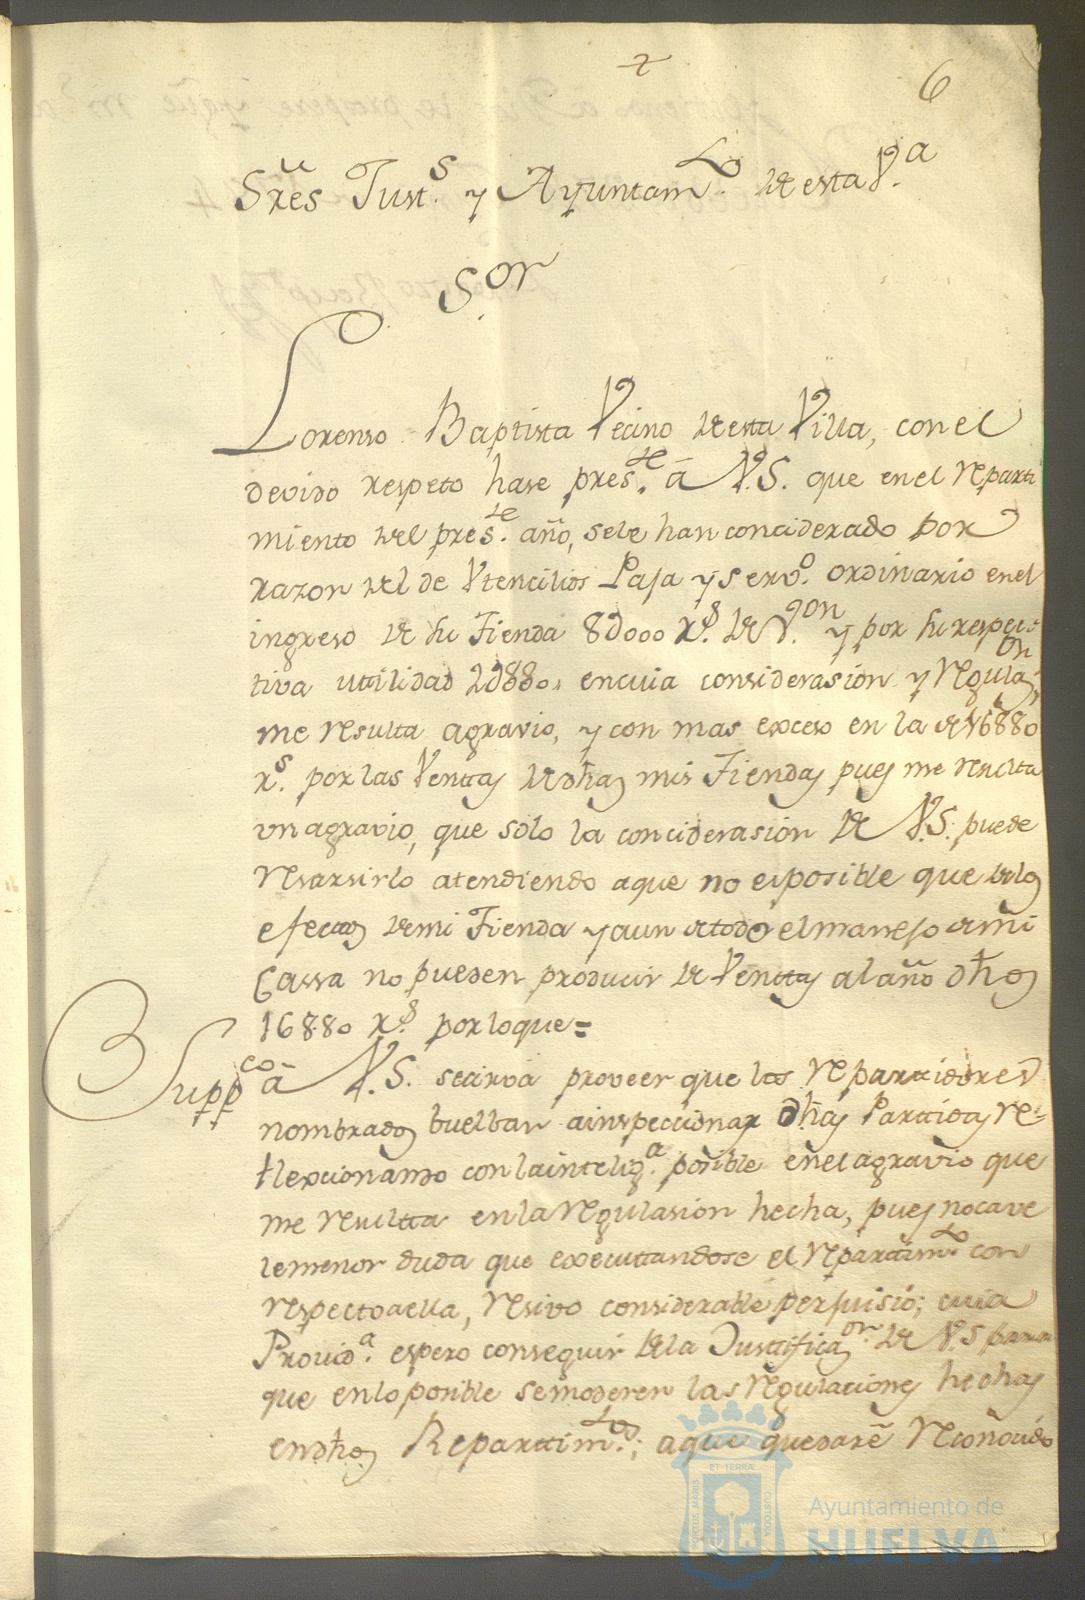 6
Sres Just.s y Ayuntam.to de esta V.a
S.or
Lorenso Baptista Vecino de esta Villa, con el
devido respeto hase pres.te â V.S. que en el reparti
miento del pres.te año, sele han conciderado por
razon del de Vtencilios Paja y serv.o ordinario en el
ingreso de su Tienda 8D000 r.s de V.on y por su respec-
tiva utilidad 2D880, en cuia considerasion y Regulas.on
me resulta agravio, y con mas exceso en la de 16880
r.s por las Venttas de dhas mis Tiendas pues me resulta
vn agravio, que sólo la conciderasion de V.S. puede
resarsirlo atendiendo aque no es posible que de los
efectos de mi Tienda y aun de todo el manejo de mi
Cassa no pueden producir de Venttas al año dhos
16880 r.s por loque=
Supp.co â V.S. se cirva proveer que los repartidores
nombrados buelban a inspeccionar dhas Parttidas re-
flexcionando con la intelig.a posible en el agravio que
me resultta en la regulasion hecha, pues no cave
le menor duda que executtandose el repartim.to con
respecto aella, resivo considerable perjuisio; cuia
Provid.a espero conseguir de la Justtificas.on de V.S para
que en lo posible se moderen las regulaciones hechas
en dhos Reparttim.tos; a que quedaré reconosido
ET TERRÆ
PORTUS MARIS
CUSTODIA
Ayuntamiento de
HUELVA